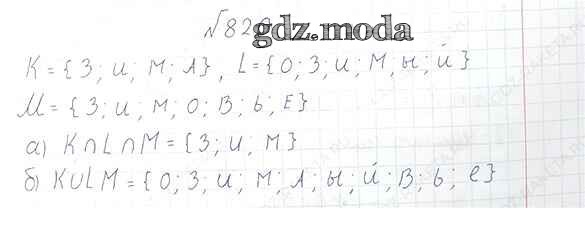 №828
gdz.moda
K = { З; И; М; А}, L = {О; З; И; М; Ы; Й}
М = { З; И; М; О; В; Ь; Е}
а) K ∩ L ∩ М = { З; И; М }
б) K U L М = { О; З; И; М; А; Ы; Й; В; Ь; Е}